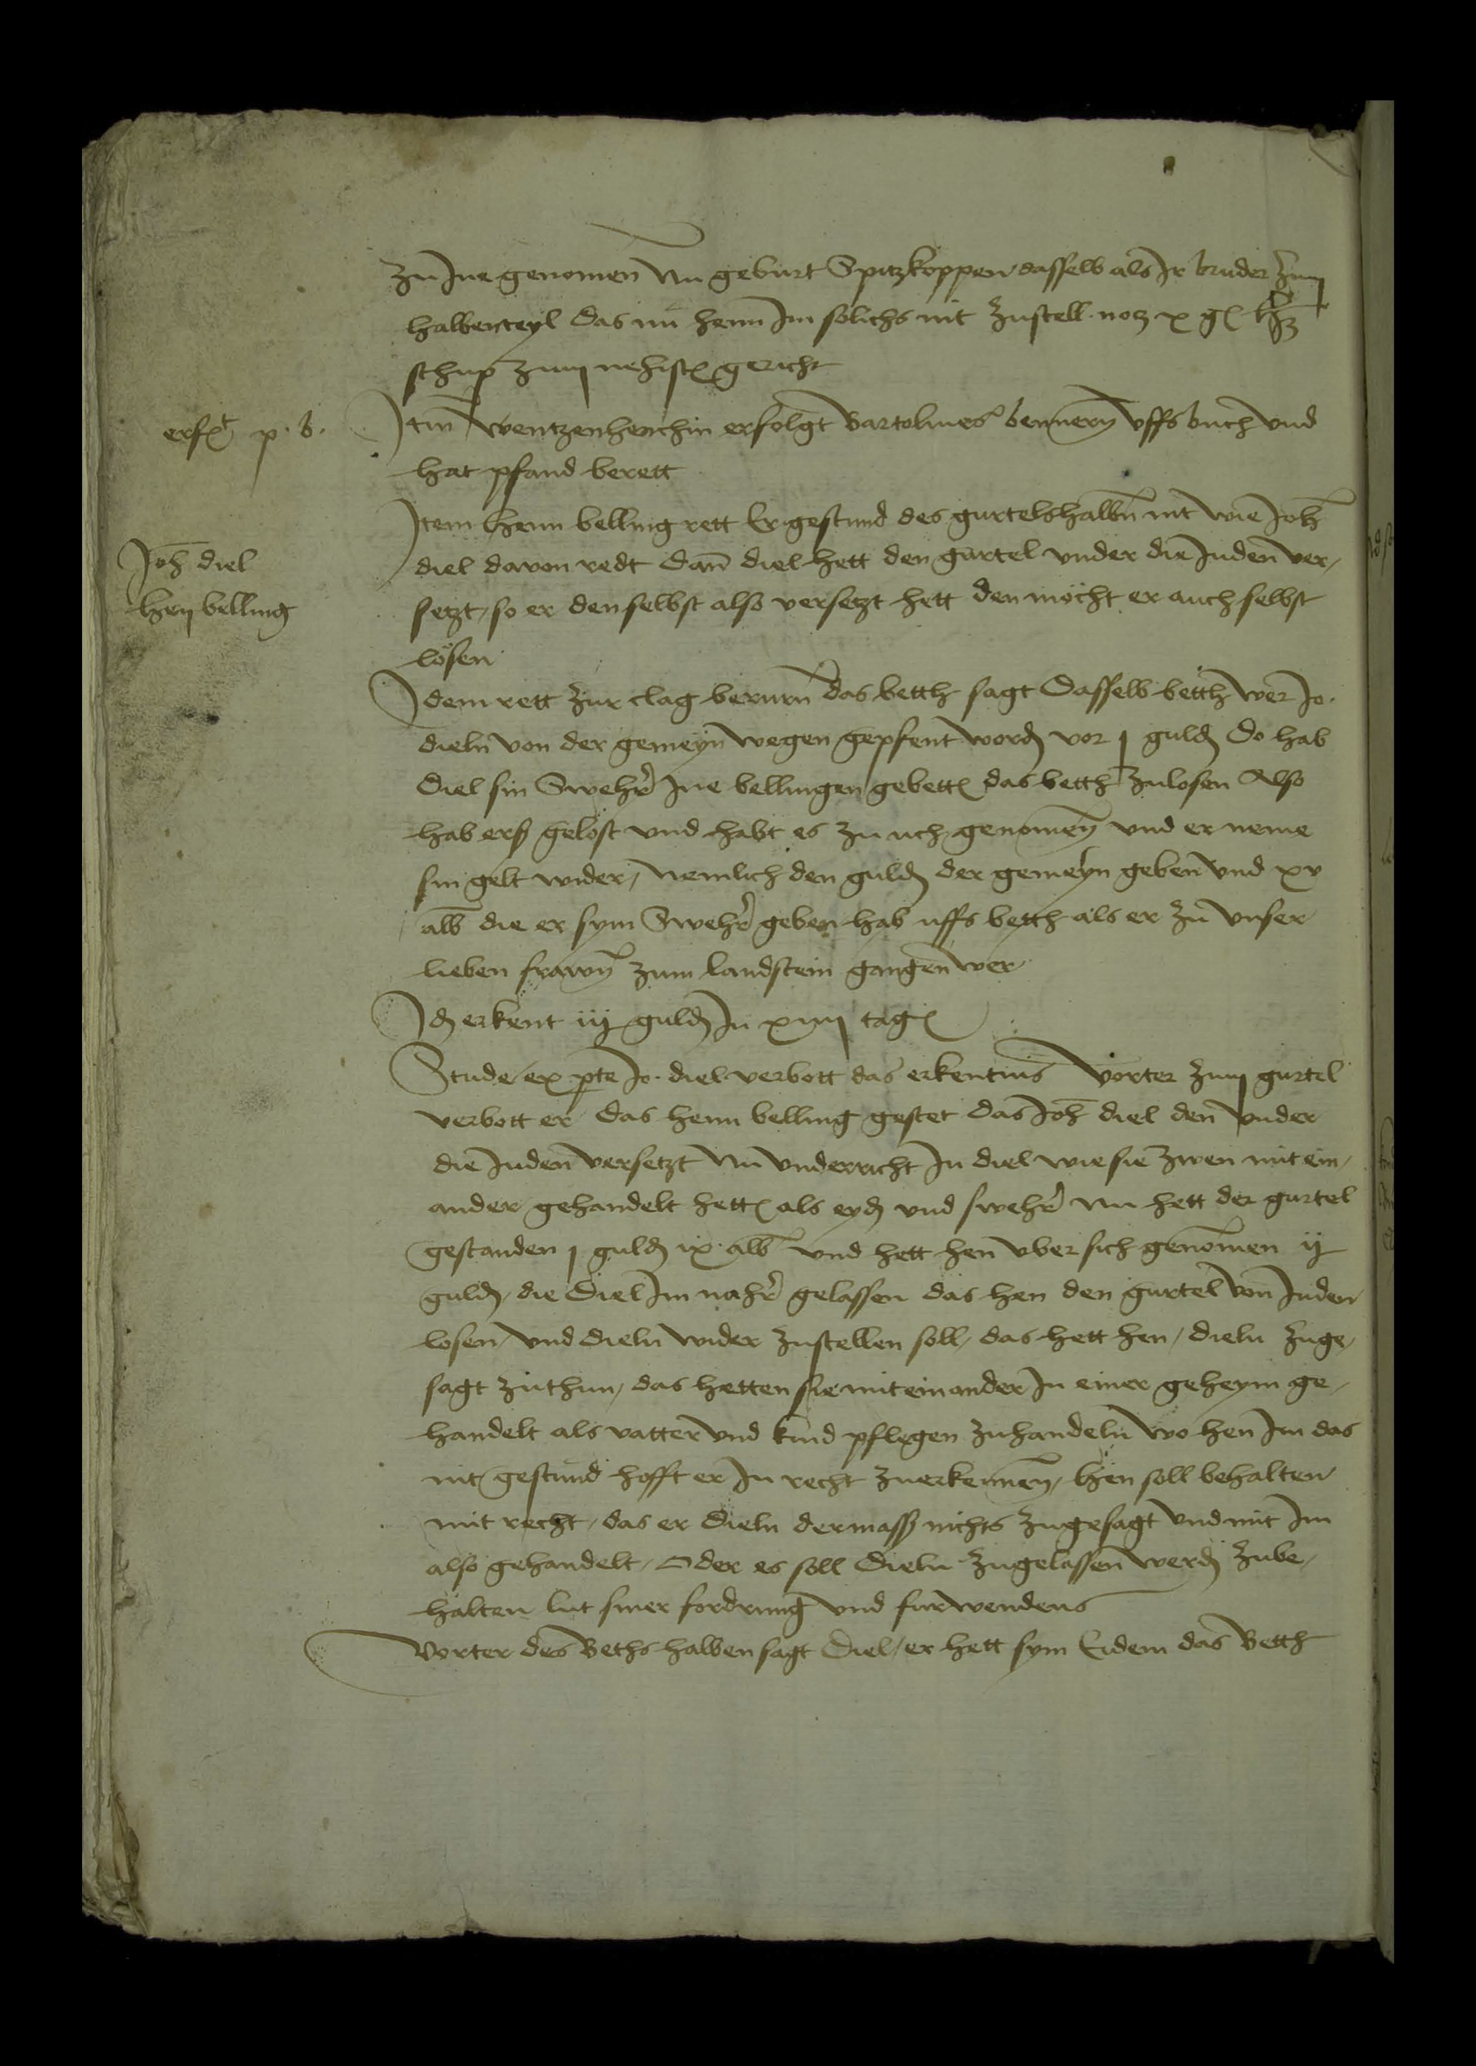 zu Ine genomen Nu geburt Spitzkoppen dasselb als Ir bruder zum
halbenteyl das nu henn Im solichs nit zustell noĩ x gl
schup zum nehisten gericht
erft p. b.
Item Wentzenhenchin erfolgt Bartolmes bennern uffs buch und
hat pfand berett
Joh diel
Hen belling
Item Henn belling rett Er gestund des gurtels halbn nit wie Joh
diel davon redt dan diel hett den gurtel under die Juden ver,
setzt, so er den selbst also versetzt hett den möcht er auch selbst
lösen
Idem rett zur clag berurn das betth sagt Dasselb betth wer Jo.
dieln von der gemeyn wegen gepfent word vor j guld Do hab
Diel sin Swehr Ine bellingen gebetten das betth zulosen Also
hab ers gelöst und habt es zu uch genomen und er neme
sin gelt wider, nemlich den guld der gemeyn geben und xv
alb die er sym Swehr geben hab uffs betth als er zu unser
lieben frawen zum landstein gangen wer
Id erkent iij guld In xiiij tagen
Stude ex parte Jo. diel verbott das erkentnis Vorter zum gurtel
verbott er das henn belling gestet das Joh diel den under
die Juden versetzt Nu underricht In diel wie sie zwen mit ein,
ander gehandelt hetten als eyd und swehr Nu hett der gurtel
gestanden j guld ix alb und hett hen uber sich genomen ij
guld, die Diel Im nahr gelassen das hen den gurtel von Juden
losen, und dieln wider zustellen soll, das hett hen, dieln zuge,
sagt zuthun, das hetten sie miteinander In einer geheym ge,
handelt als vatter und kind pflegen zuhandeln wo hen Im das
nit gestund hofft er In recht zuerkennen, hen soll behalten
mit recht, das er Dieln dermass nichts zugesagt und mit Im
also gehandelt, Oder es soll Dieln zugelassen werd zube,
halten lut siner fordrung und furwendens
Vorter des Beths halben sagt Diel, er hett sym Eidem das Betth